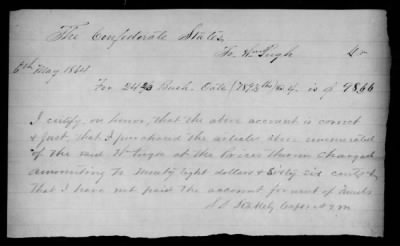 The Confederate States
To Wm Pugh Dr
6th May 1864
For 24 Bush. Oats is $ 98.66
I certify, on honor, that the above account is correct
& just, that I purchased the articles above enumerated
of the said Wm Pugh at the Prices thereon Charged
amounting to Ninety Eight dollars & Sixty Six cents &
that I have not paid the account for want of funds
Capt & A Q M